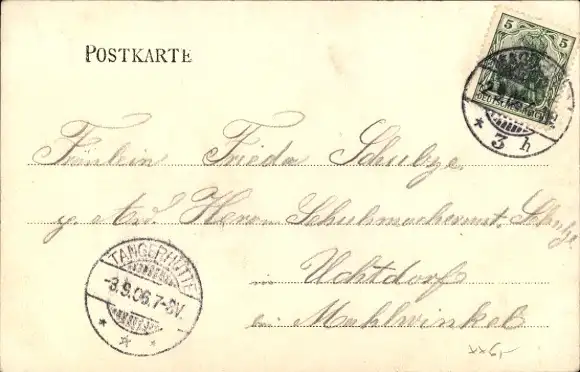 5 5
DEUTSCHES REICH
POSTKARTE
3 h
Fräulein Frieda Schulze
p. Ad. Herrn Schuhmachermst. Schulze
in Uchtdorf
bei Mahlwinkel
TANGERHÜTTE
-3.9.06.7-8V.